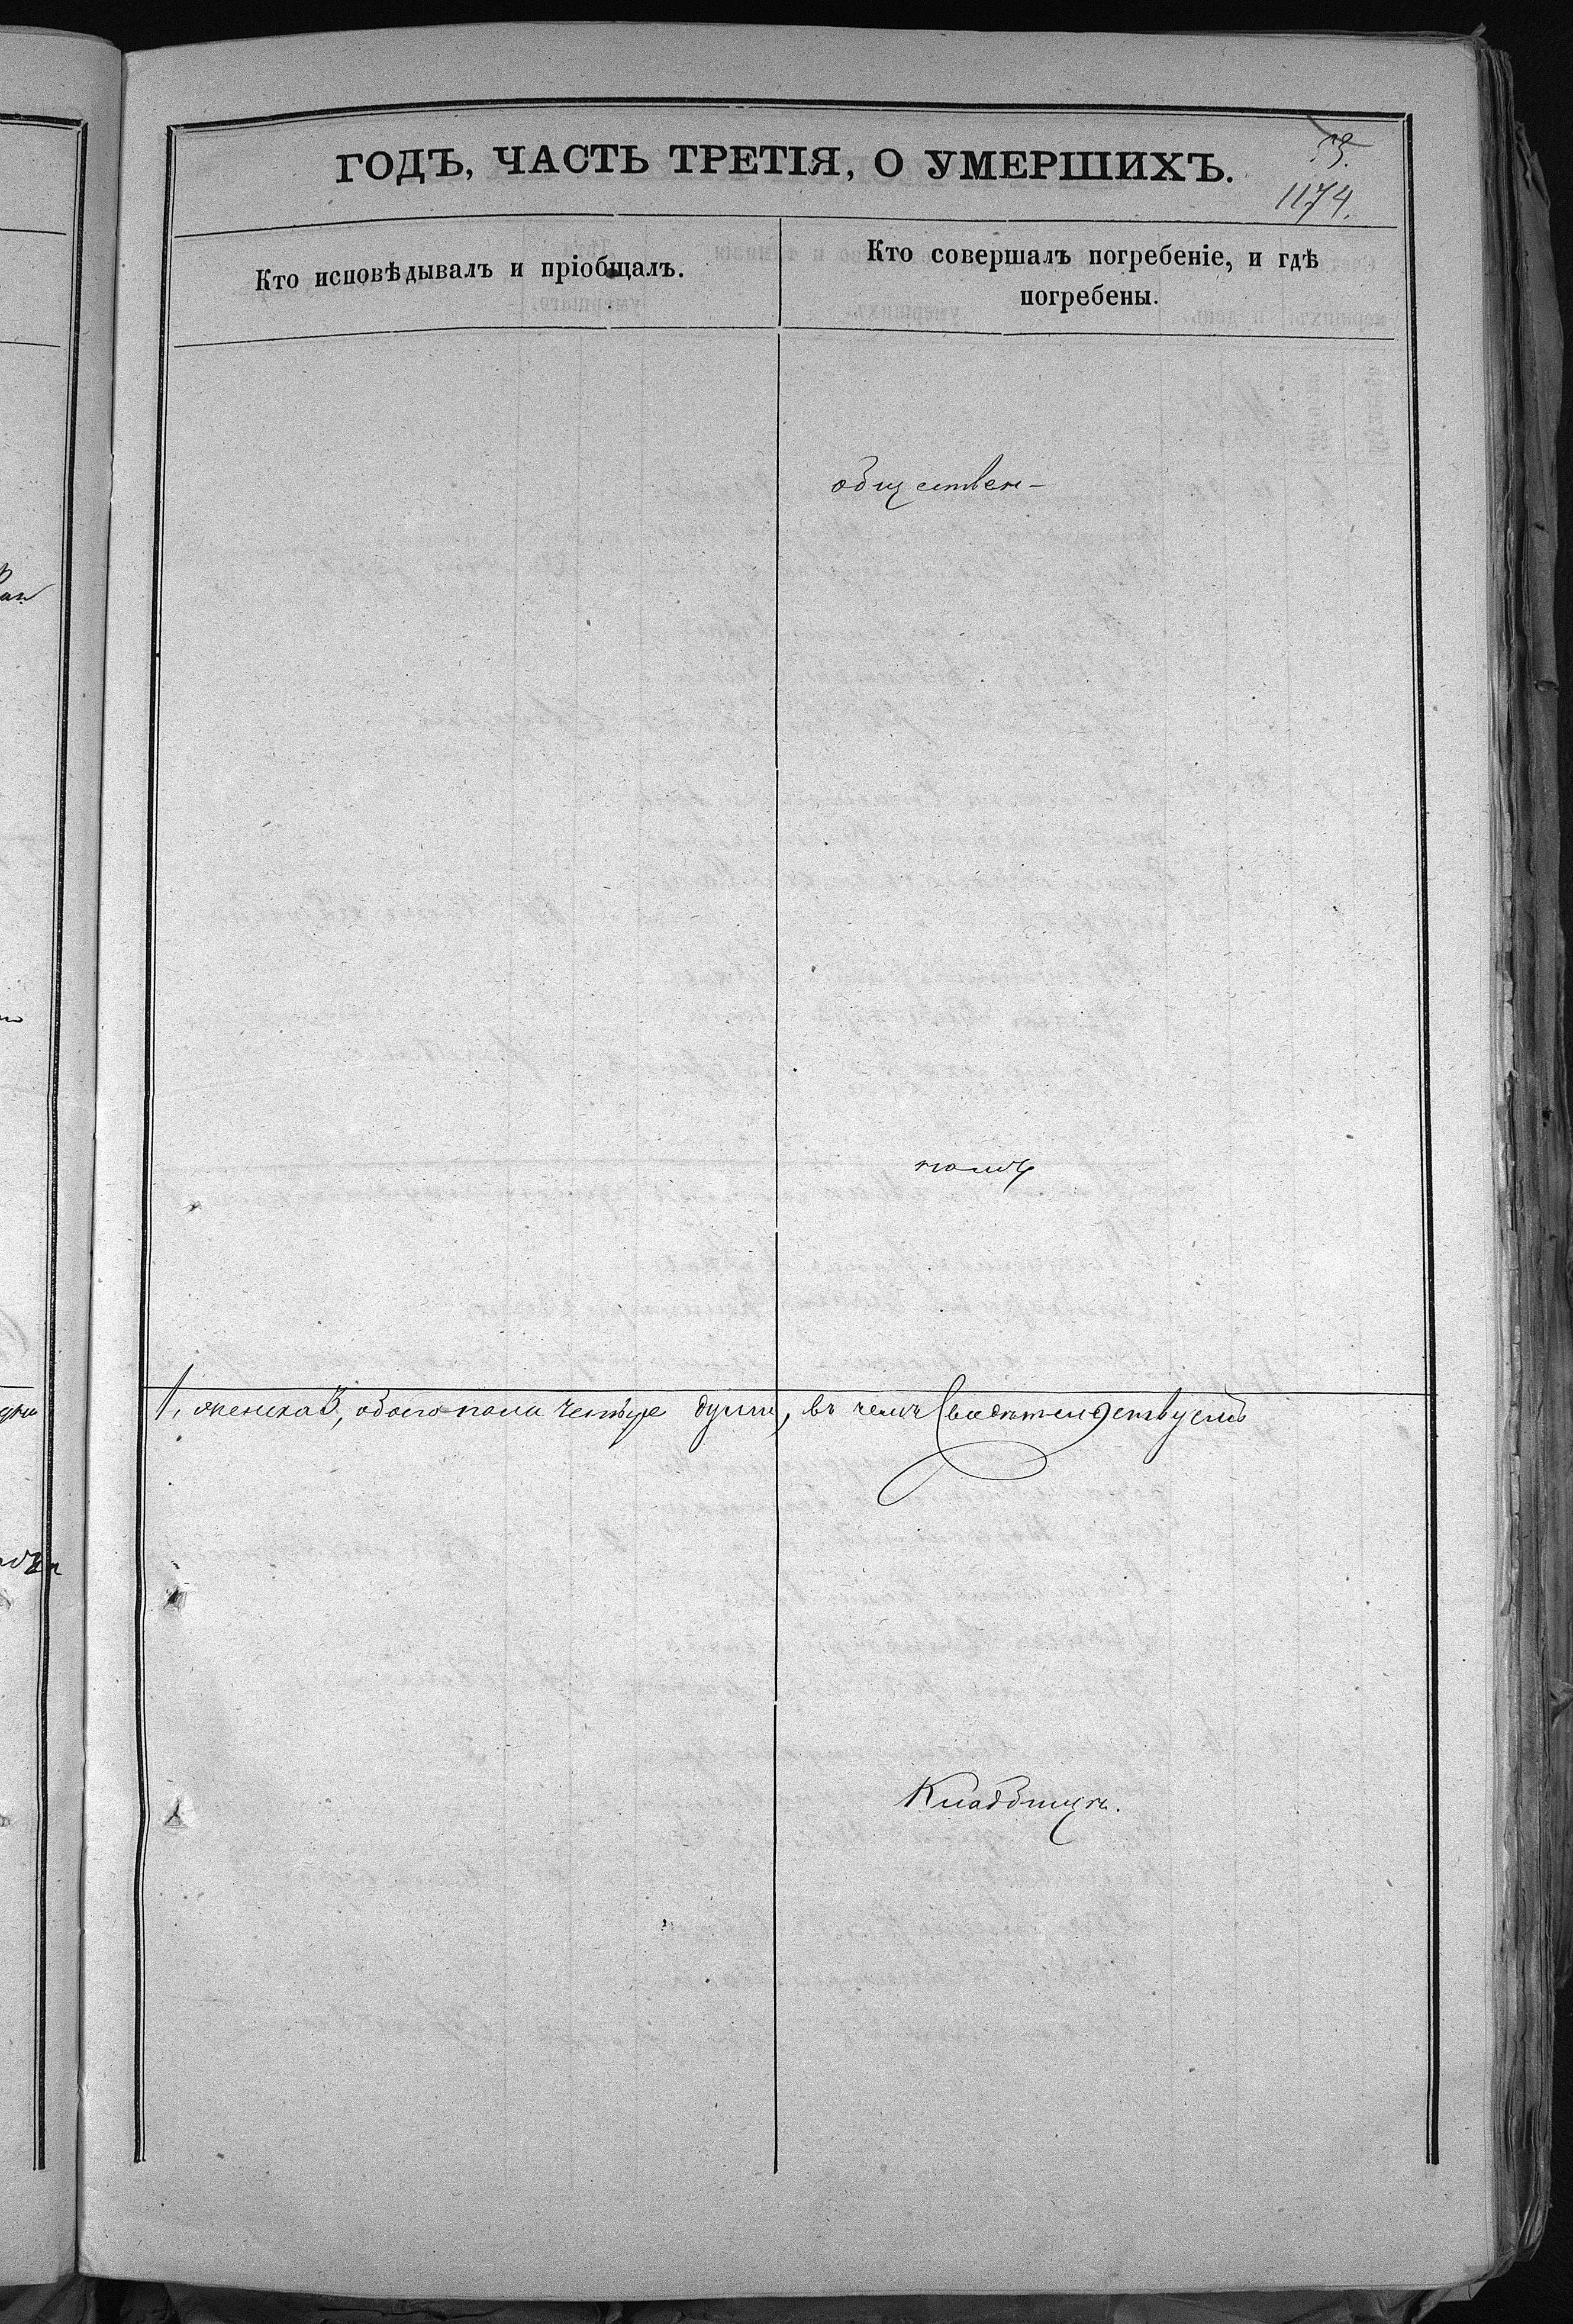 ГОДЪ, ЧАСТЬ ТРЕТІЯ, О УМЕРШИХЪ.
1174.
Кто исповѣдывалъ и пріобщалъ.
Кто совершалъ погребеніе, и гдѣ
погребены.
обществен-
номъ
1, женска 3, обоего пола четыре души, въ чемъ свидѣтельствуемъ
Кладбищѣ.